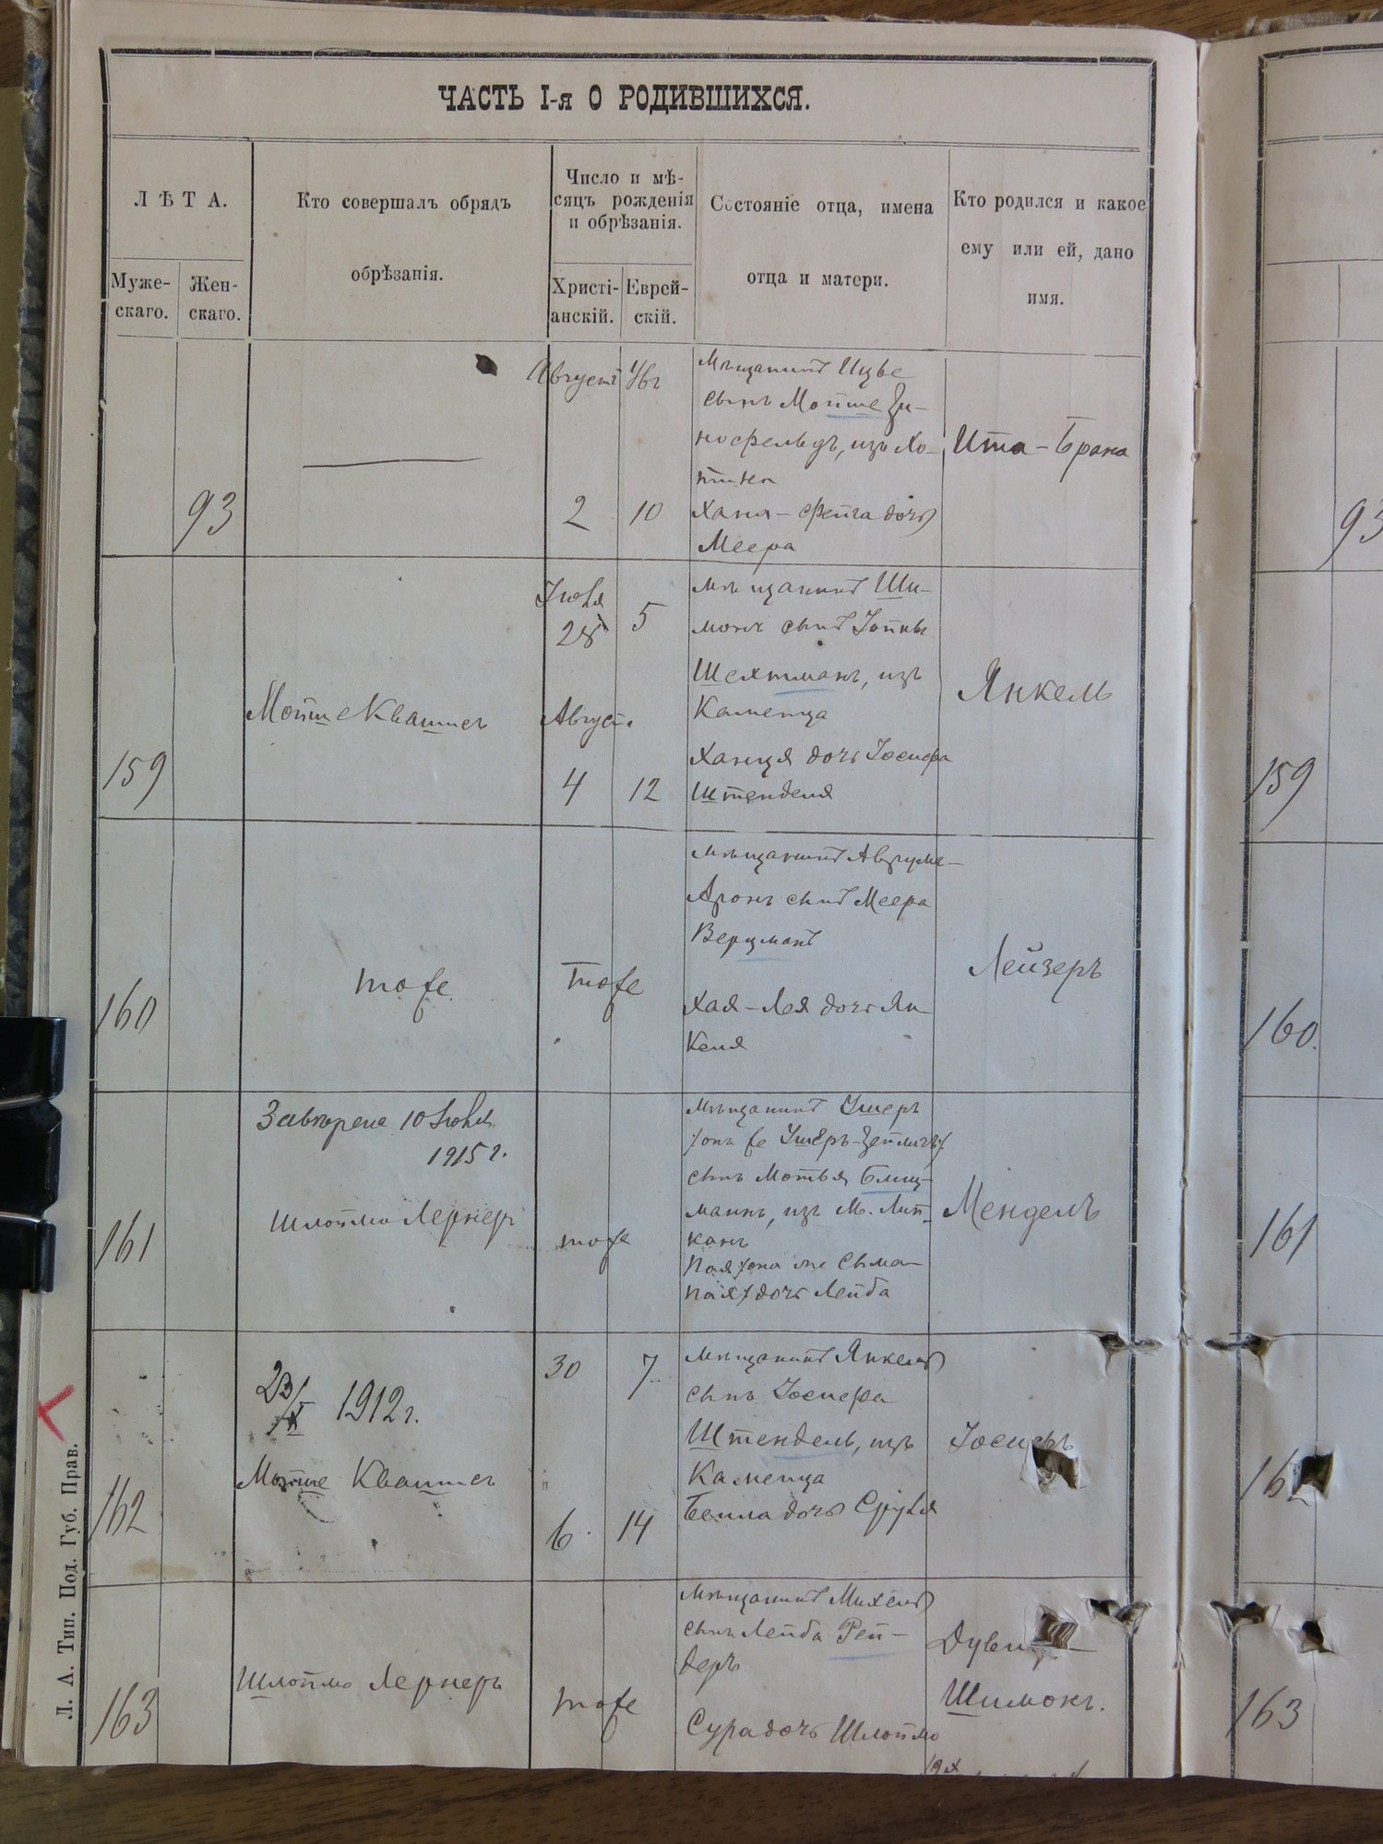 ЧАСТЬ I-я О РОДИВШИХСЯ.
ЛѢТА.
Муже-
скаго.
Жен-
скаго.
Кто совершалъ обрядъ
обрѣзанія.
Число и мѣ-
сяцъ рожденія
и обрѣзанія.
Христі-
анскій.
Еврей-
скій.
Состояніе отца, имена
отца и матери.
Кто родился и какое
ему или ей, дано
имя.
93
Августъ
2
10
Мѣщанинъ Ицве
сынъ Мойше Зи-
носфельдъ, изъ Хо-
тина
Хана-Фейга дочь
Меера
Ита-Брана
93
159
Мойше Квашеръ
Іюля
28
5
Августъ
4
12
Мѣщанинъ Ши-
монъ сынъ Іойны
Шехтманъ, изъ
Каменца
Ханця дочь Іосифа
Штенделя
Янкель
159
160
тоже
тоже
Мѣщанинъ Аврумъ-
Аронъ сынъ Меера
Верцманъ
Хая-Лея дочь Ян-
келя
Лейзеръ
160.
161
Завѣрена 10 Іюля
1915 г.
Шлойма Лернеръ
тоже
Мѣщанинъ Ушеръ
/онъ же Ушеръ-Зейлигъ/
сынъ Мотья Блиц-
манъ, изъ М. Лип-
канъ
Пая /она же Сыма-
Пая/ дочь Лейба
Мендель
161
162
23/X 1912 г.
Мойше Квашеръ
30
7
6
14
Мѣщанинъ Янкель
сынъ Іосифа
Штендель, изъ
Каменца
Бейла дочь Сруля
Іосифъ
163
Шлойма Лернеръ
тоже
Мѣщанинъ Михель
сынъ Лейба Рей-
деръ
Сура дочь Шлоймо
Шимонъ.
163
Л. А. Тип. Под. Губ. Прав.